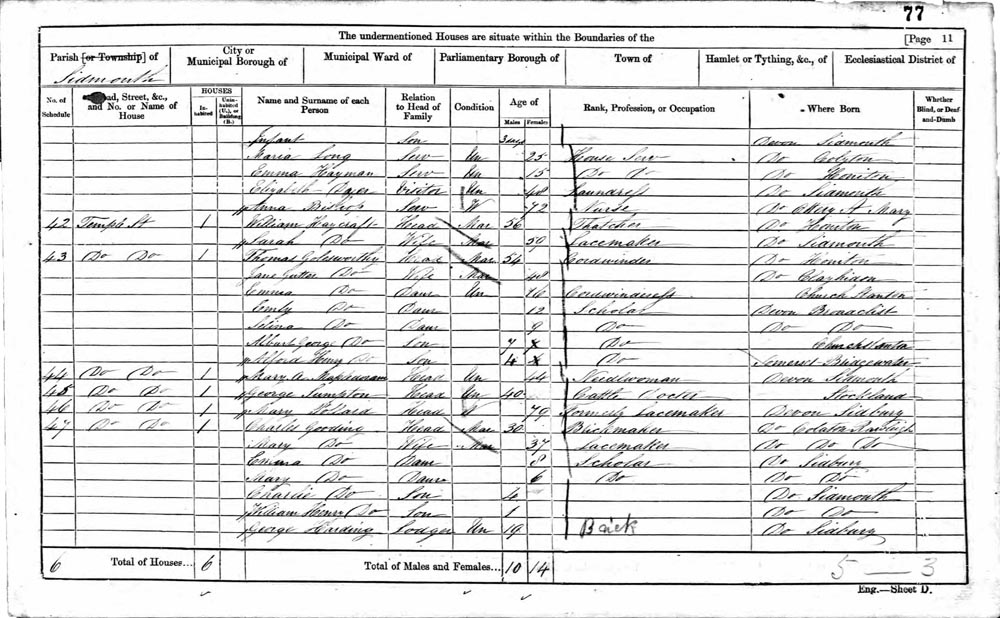 77
The undermentioned Houses are situate within the Boundaries of the [Page 11
Parish [or Township] of City or Municipal Borough of Municipal Ward of Parliamentary Borough of Town of Hamlet or Tything, &c., of Ecclesiastical District of
Sidmouth
No. of Schedule ad, Street, &c., and No. or Name of House HOUSES Inhabited Uninhabited (U.), or Building (B.) Name and Surname of each Person Relation to Head of Family Condition Age of Males Females Rank, Profession, or Occupation Where Born Whether Blind, or Deaf-and-Dumb
Infant Son 3 days Devon Sidmouth
Maria Long Serv Un 25 House Serv Do Colyton
Emma Hayman Serv Un 15 Do Do Do Honiton
Elizabeth Visitor Un 48 Laundress Do Sidmouth
Anna Bishop Serv W 72 Nurse Do Ottery St Mary
42 Temple St 1 William Haycraft Head Mar 56 Thatcher Do Honiton
Sarah Do Wife Mar 50 Lacemaker Do Sidmouth
43 Do Do 1 Thomas Golesworthy Head Mar 54 Cordwinder Do Honiton
Jane Do Wife Mar 48 Do Clayhidon
Emma Do Daur Un 16 Cordwindress Church Stanton
Emily Do Daur 12 Scholar Devon
Selina Do Daur 9 Do Do Do
Albert George Do Son 7 Do Church Stanton
Henry Do Son 4 Do Somerset Bridgewater
44 Do Do 1 Mary A. Head Un 44 Needlwoman Devon Sidmouth
45 Do Do 1 George Sumpton Head Un 40 Cattle Docter Stockland
46 Do Do 1 Mary Pollard Head W 79 formerly Lacemaker Devon Sidbury
47 Do Do 1 Charles Gooding Head Mar 30 Brickmaker Do Colaton Raleigh
Mary Do Wife Mar 37 Lacemaker Do Do Do
Emma Do Daur 8 Scholar Do Sidbury
Mary Do Daur 6 Do Do Do
Charlie Do Son 4 Do Sidmouth
William Henry Do Son 1 Do Do
George Harding Lodger Un 19 Brick Do Sidbury
6 Total of Houses... 6 Total of Males and Females... 10 14 5 — 3
Eng.—Sheet D.